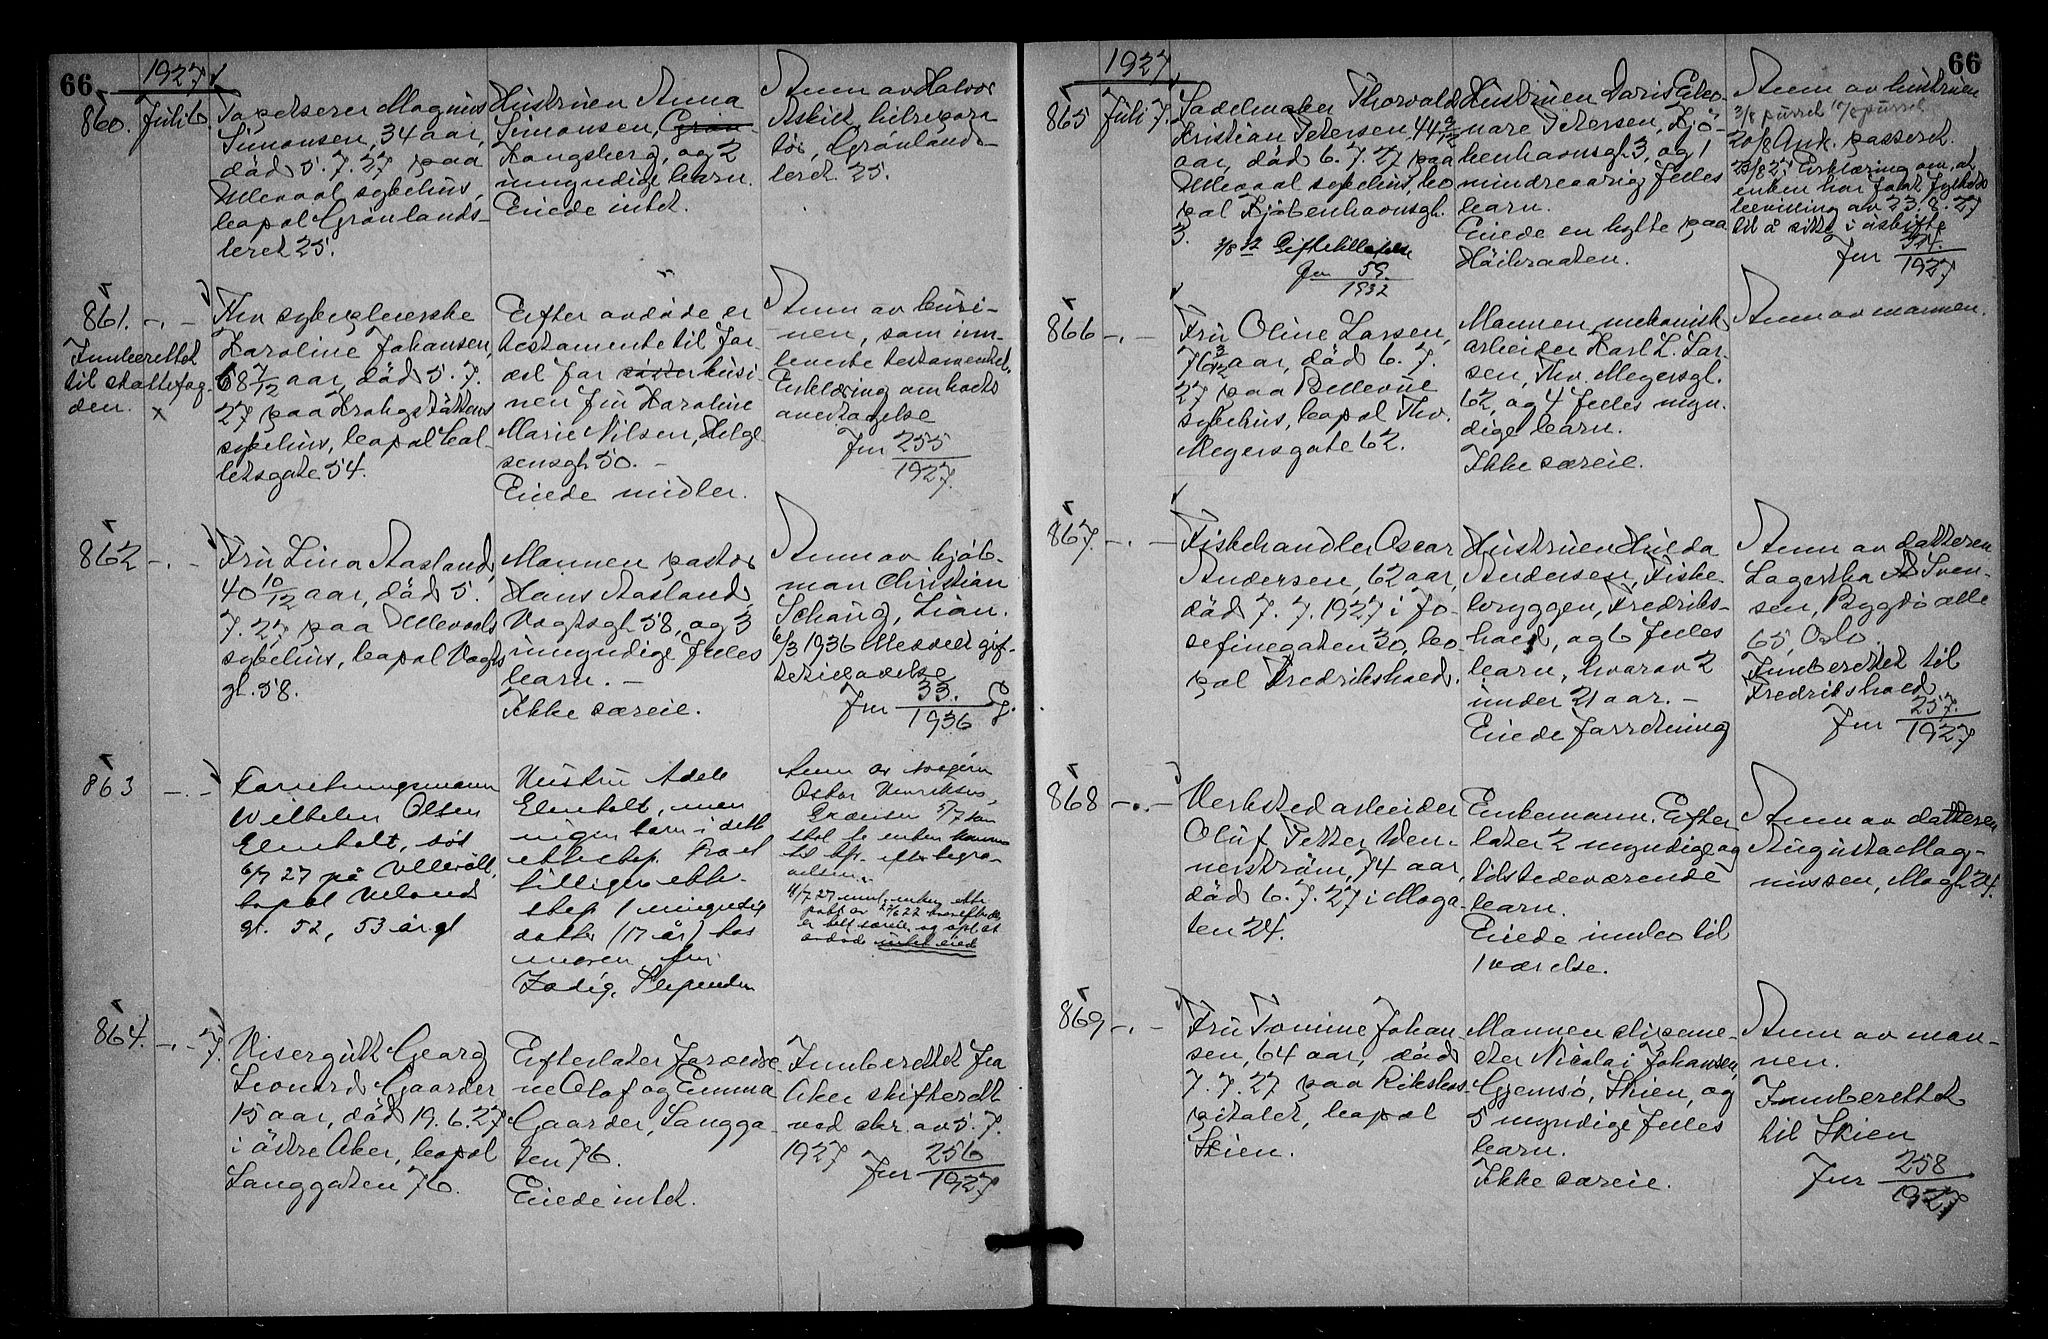 66
1927
860. Juli 6.
Tapetserer Magnus
Simonsen, 34 aar,
död 5. 7. 27 paa
Ullevaal sykehus,
bopæl Grønlands-
leret 25.
Hustruen Anna
Simonsen, Grøn-
Kongsberg, og 2
umyndige barn.
Eiede intet.
Anm av Halvor
Askilt, bilrepara
tör, Grønlands-
leret 25.
861. -.-
Innberettet
til skattefog
den. x
Frk sykepleierske
Karoline Johansen,
68 7/12 aar, död 5. 7.
27 paa Krohgstöttens
sykehus, bopæl Cal-
letsgate 54.
Efter avdöde er
testamente til for-
del for søster kusi-
nen fru Karoline
Marie Nilsen, Helge
sensgt. 50. -
Eiede midler.
Anm av kusi-
nen, som inn-
leverte testamentet.
Erklæring om bodts
overtagelse
Jnr 255
1927.
862 -.-
Fru Lina Aasland,
40 10/12 aar, död 5.
7. 27 paa Ullevaals
sykehus, bopæl Vogts
gt. 58.
Mannen pastor
Hans Aasland,
Vogtsgt. 58, og 3
umyndige felles
barn. -
Ikke særeie.
Anm av kjöb-
man Christian
Schaug, Lian.
6/3 1936 Meddelt gif-
tetilladelse
Jnr 33.
1936
863 -.-
Forretningsmann
Wilhelm Olsen
Elenholt, død
6/7 27 på Ullevål,
bopæl Uelands
gt. 52, 53 år gl
Hustru Adele
Elenholt, men
ingen barn i dette
ekteskap. Fra et
tidligere ekte-
skap 1 umyndig
datter (17 år) hos
moren, fru
Zadig, Slependen
Anm av svogeren
Oskar Henriksen,
Grensen 5/7 han
skal be enken komme
til kpt. efter begra-
velsen.
864. -.-7.
Visergutt Georg
Leonard Gaarder
15 aar, död 19. 6. 27
i östre Aker, bopæl
Langgaten 76.
Efterlater foreldre-
ne Olaf og Emma
Gaarder, Langga-
ten 76.
Eiede intet.
Innberettet fra
Aker skifterett
ved skr. av 5. 7.
1927 Jnr 256
1927
66
1927
865 Juli 7.
Sadelmaker Thorvald
Kristian Petersen, 44 9/12
aar, död 6. 7. 27 paa
Ullevaal sykehus, bo
pæl Kjöbenhavnsgt.
3.
3/8 32 Giftetilladelse
Jnr 59
1932
Hustruen Doris Eleo-
nore Petersen, Kjö-
benhavnsgt. 3, og 1
mindreaarig felles
barn.
Eiede en hytte paa
Höibraaten.
Anm av hustruen
3/8 purret 17/8 purret
20/8 Ank. passeret.
23/8 27 Erklæring om, at
enken har faat fylkets
bevilling av 23. 8. 27
til å sitte i uskifte
Jnr 324.
1927
866 -.-
Fru Oline Larsen,
76 3/12 aar, död 6. 7.
27 paa Bellevue
sykehus, bopæl Thv.
Meyersgate 62.
Mannen, mekanisk
arbeider Karl L. Lar-
sen, Thv. Meyersgt.
62, og 4 felles myn-
dige barn.
Ikke særeie.
Anm av mannen.
867. -.-
Fiskehandler Oscar
Andersen, 62 aar,
död 7. 7. 1927 i Jo-
sefinegaten 30, bo-
pæl Fredrikshald.
Hustruen Hulda
Andersen, Fiske-
bryggen, Fredriks-
hald, og 6 felles
barn, hvorav 2
under 21 aar. -
Eiede forretning
Anm av datteren
Lagertha Sven-
sen, Bygdö alle
65, Oslo.
Innberettet til
Fredrikshald
Jnr 257.
1927
868 -.-
Verkstedarbeider
Oluf Petter Wen-
nerström, 74 aar,
död 6. 7. 27 i Moga-
ten 24.
Enkemann. Efter-
later 2 myndige og
tilstedeværende
barn.
Eiede innbo til
1 værelse.
Anm av datteren
Augusta Mag-
nussen, Mogt. 24.
869 -.-
Fru Tomine Johan
sen, 64 aar, död
7. 7. 27 paa Rikshos
pitalet, bopæl
Skien.
Mannen slipeme-
ster Nicolai Johansen,
Gjemsö, Skien, og
5 myndige felles
barn.
Ikke særeie.
Anm av man-
nen.
Innberettet
til Skien
Jnr 258
1927